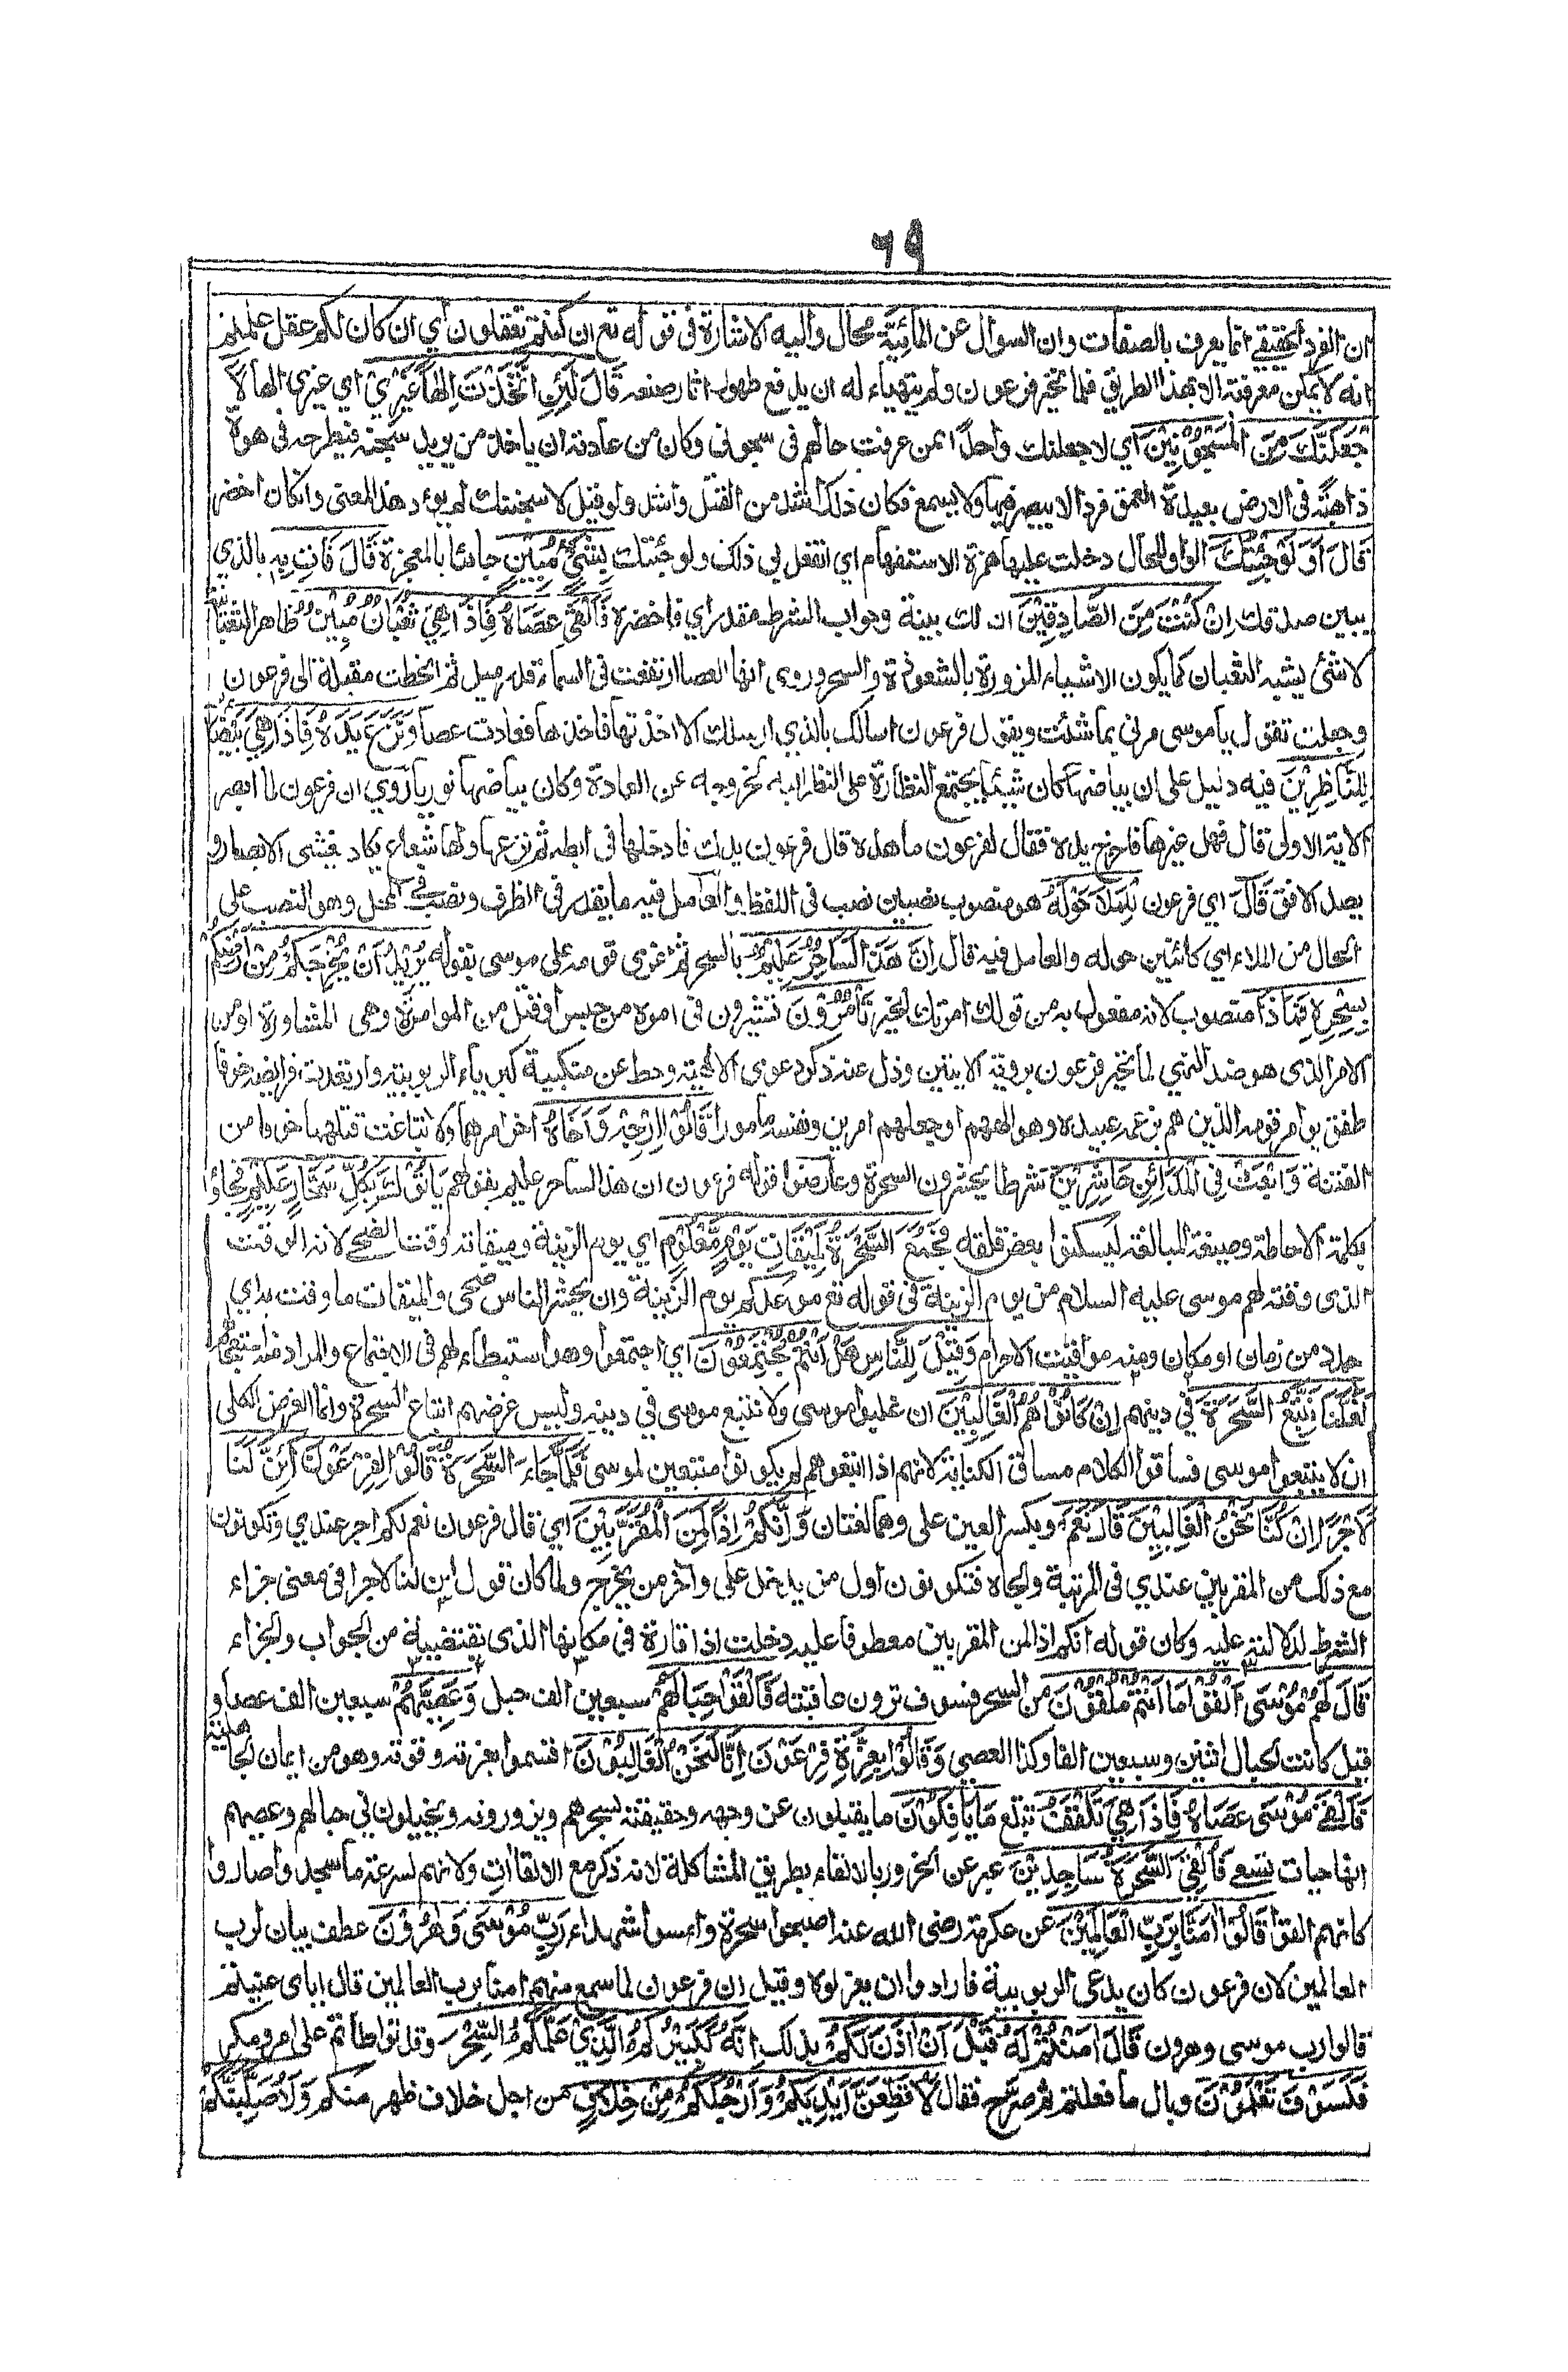 ٦٩
ان الفرد الحقيقي انما يعرف بالصفات وان السوال عن المائية محال واليه الاشارة فى قوله تع ان كنتم تعقلون اي ان كان لكم عقل علمتم
انه لا يمكن معرفته الا بهذا الطريق فلما تحير فرعون ولم يتهياء له ان يدفع ظهور اثار صنعه قَالَ لَئِنِ اتَّخَذْتَ اِلٰهًا غَيْرِيْ اي غيري الها لَاَ
جْعَلَنَّكَ مِنَ الْمَسْجُوْنِيْنَ اي لاجعلنك واحدا ممن عرفت حالهم فى سجونى وكان من عادته ان ياخذ من يريد سجنه فيطرحه فى هوة
ذاهبة فى الارض بعيدة العمق فردا لا يبصر فيها ولا يسمع فكان ذلك اشد من القتل واشد ولو قيل لاسجننك لم يود هذا المعنى وانكان اخضر
قَالَ اَوَلَوْ جِئْتُكَ الواو للحال دخلت عليها همزة الاستفهام اي اتفعل بي ذلك ولو جئتك بِشَيْءٍ مُّبِيْنٍ جائنا بالمعجزة قَالَ فَاْتِ بِهٖ بالذي
يبين صدقك اِنْ كُنْتَ مِنَ الصَّادِقِيْنَ ان لك بينة وجواب الشرط مقدر اي فاحضره فَاَلْقٰى عَصَاهُ فَاِذَا هِيَ ثُعْبَانٌ مُّبِيْنٌ ظاهر الثعبانية
لا شئ يشبه الثعبان كما يكون الاشياء المزورة بالشعوذة والسحر وروى انها العصا ارتفعت فى السماء قدر ميل ثم انحطت مقبلة الى فرعون
وجعلت تقول يا موسى مرنى بما شئت ويقول فرعون اسالك بالذي ارسلك الا اخذتها فاخذها فعادت عصا وَنَزَعَ يَدَهُ فَاِذَا هِيَ بَيْضَاءُ
لِلنَّاظِرِيْنَ فيه دليل على ان بياضها كان شيئا يجتمع النظارة على النظر اليه لخروجه عن العادة وكان بياضها نوريا روي ان فرعون لما ابصر
الاية الاولى قال فهل غيرها فاخرج يده فقال لفرعون ما هذه قال فرعون يدك فادخلها فى ابطه ثم نزعها ولها شعاع يكاد يغشى الابصار و
يصد الافق قَالَ اي فرعون لِلْمَلَاِ حَوْلَهُ هو منصوب نصبين نصب فى اللفظ والعامل فيه ما يقدر فى الظرف ونصب فى المحل وهو النصب على
الحال من الملاء اي كائنين حوله والعامل فيه قال اِنَّ هٰذَا لَسَاحِرٌ عَلِيْمٌ بالسحر ثم اغوى قومه على موسى بقوله يُرِيْدُ اَنْ يُّخْرِجَكُمْ مِنْ اَرْضِكُمْ
بِسِحْرِهِ فَمَاذَا منصوب لانه مفعول به من قولك امرتك الخير تَاْمُرُوْنَ تشيرون فى امره من حبس او قتل من المؤامرة وهى المشاورة او من
الامر الذى هو ضد النهي لما تحير فرعون بروية الايتين وذل عنه ذكر دعوى الالهية وحط عن منكبيه كبرياء الربوبية وارتعدت فرايصه خوفا
طفق يوامر قومه الذين هم بزعمه عبيده وهو الههم او جعلهم امرين ونفسه مامورا قَالُوْا اَرْجِهْ وَاَخَاهُ اخر امرهما ولا تباغت قتلهما خوفا من
الفتنة وَابْعَثْ فِى الْمَدَائِنِ حَاشِرِيْنَ شرطا يحشرون السحرة وعارضوا قوله فرعون ان هذا لساحر عليم بقولهم يَاْتُوْكَ بِكُلِّ سَحَّارٍ عَلِيْمٍ فجاؤا
بكلمة الاحاطة وصيغة المبالغة ليسكنوا بعض قلقه فَجُمِعَ السَّحَرَةُ لِمِيْقَاتِ يَوْمٍ مَّعْلُوْمٍ اي يوم الزينة وميقاته وقت الضحى لانه الوقت
الذى وقته لهم موسى عليه السلام من يوم الزينة فى قوله تع موعدكم يوم الزينة وان يحشر الناس ضحى والميقات ما وقت به اي
حدد من زمان او مكان ومنه مواقيت الاحرام وَقِيْلَ لِلنَّاسِ هَلْ اَنْتُمْ مُّجْتَمِعُوْنَ اي اجتمعوا وهو استبطاء لهم فى الاجتماع والمراد منه استعجالهم
لَعَلَّنَا نَتَّبِعُ السَّحَرَةَ في دينهم اِنْ كَانُوْا هُمُ الْغَالِبِيْنَ ان غلبوا موسى ولا نتبع موسى في دينه وليس غرضهم اتباع السحرة وانما الغرض الكلى
ان لا يتبعوا موسى فساقوا الكلام مساق الكناية لانهم اذا اتبعوهم لم يكونوا متبعين لموسى فَلَمَّا جَاءَ السَّحَرَةُ قَالُوْا لِفِرْعَوْنَ اَئِنَّ لَنَا
لَاَجْرًا اِنْ كُنَّا نَحْنُ الْغَالِبِيْنَ قَالَ نَعَمْ وبكسر العين على وهما لغتان وَاِنَّكُمْ اِذًا لَّمِنَ الْمُقَرَّبِيْنَ اي قال فرعون نعم لكم اجر عندي وتكونون
مع ذلك من المقربين عندي فى المرتبة والجاه فتكونون اول من يدخل علي واخر من يخرج ولما كان قول ائن لنا لاجرا فى معنى جزاء
الشرط لدلالته عليه وكان قوله انكم اذا لمن المقربين معطوفا عليه دخلت اذا قارة فى مكانها الذى يقتضيه من الجواب والجزاء
قَالَ لَهُمْ مُّوْسٰى اَلْقُوْا مَا اَنْتُمْ مُّلْقُوْنَ من السحر فسوف ترون عاقبته فَاَلْقَوْا حِبَالَهُمْ سبعين الف حبل وَعِصِيَّهُمْ سبعين الف عصا و
قيل كانت الحبال اثنين وسبعين الفا وكذا العصي وَقَالُوْا بِعِزَّةِ فِرْعَوْنَ اِنَّا لَنَحْنُ الْغَالِبُوْنَ اقسموا بعزته وقوته وهو من ايمان الجاهلية
فَاَلْقٰى مُوْسٰى عَصَاهُ فَاِذَا هِيَ تَلْقَفُ تبتلع مَا يَاْفِكُوْنَ ما يقلبون عن وجهه وحقيقته بسحرهم ويزورونه ويخيلون في حبالهم وعصيهم
انها حيات تسعى فَاُلْقِيَ السَّحَرَةُ سَاجِدِيْنَ عبر عن الخرور بالالقاء بطريق المشاكلة لانه ذكر مع الالقاات ولانهم لسرعة ما سجدوا صاروا
كانهم القوا قَالُوْا اٰمَنَّا بِرَبِّ الْعَالَمِيْنَ عن عكرمة رضى الله عنه اصبحوا سحرة وامسوا شهداء رَبِّ مُوْسٰى وَهٰرُوْنَ عطف بيان لرب
العالمين لان فرعون كان يدعى الربوبية فارادوا ان يعزلوه وقيل ان فرعون لما سمع منهم امنا برب العالمين قال اياى عنيتم
قالوا رب موسى وهرون قَالَ اٰمَنْتُمْ لَهُ قَبْلَ اَنْ اٰذَنَ لَكُمْ بذلك اِنَّهُ لَكَبِيْرُكُمُ الَّذِيْ عَلَّمَكُمُ السِّحْرَ وقد تواطأتم على امر ومكر
فَلَسَوْفَ تَعْلَمُوْنَ وبال ما فعلتم ثم صرح فقال لَاُقَطِّعَنَّ اَيْدِيَكُمْ وَاَرْجُلَكُمْ مِنْ خِلَافٍ من اجل خلاف ظهر منكم وَلَاُصَلِّبَنَّكُمْ